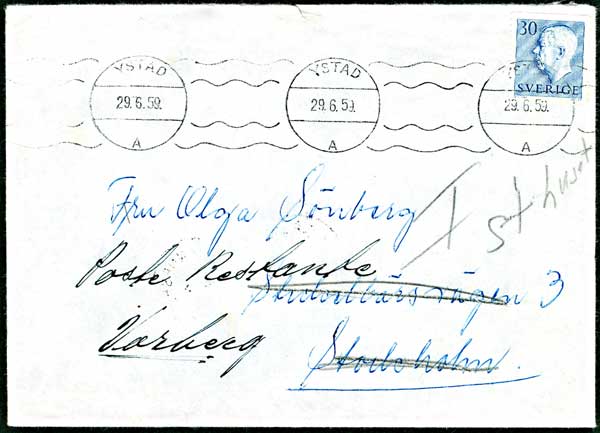 30
SVERIGE
YSTAD YSTAD YSTAD
29.6.59. 29.6.59. 29.6.59.
A A A
Fru Olga Sönberg
Poste Restante
3
Varberg
Stockholm.